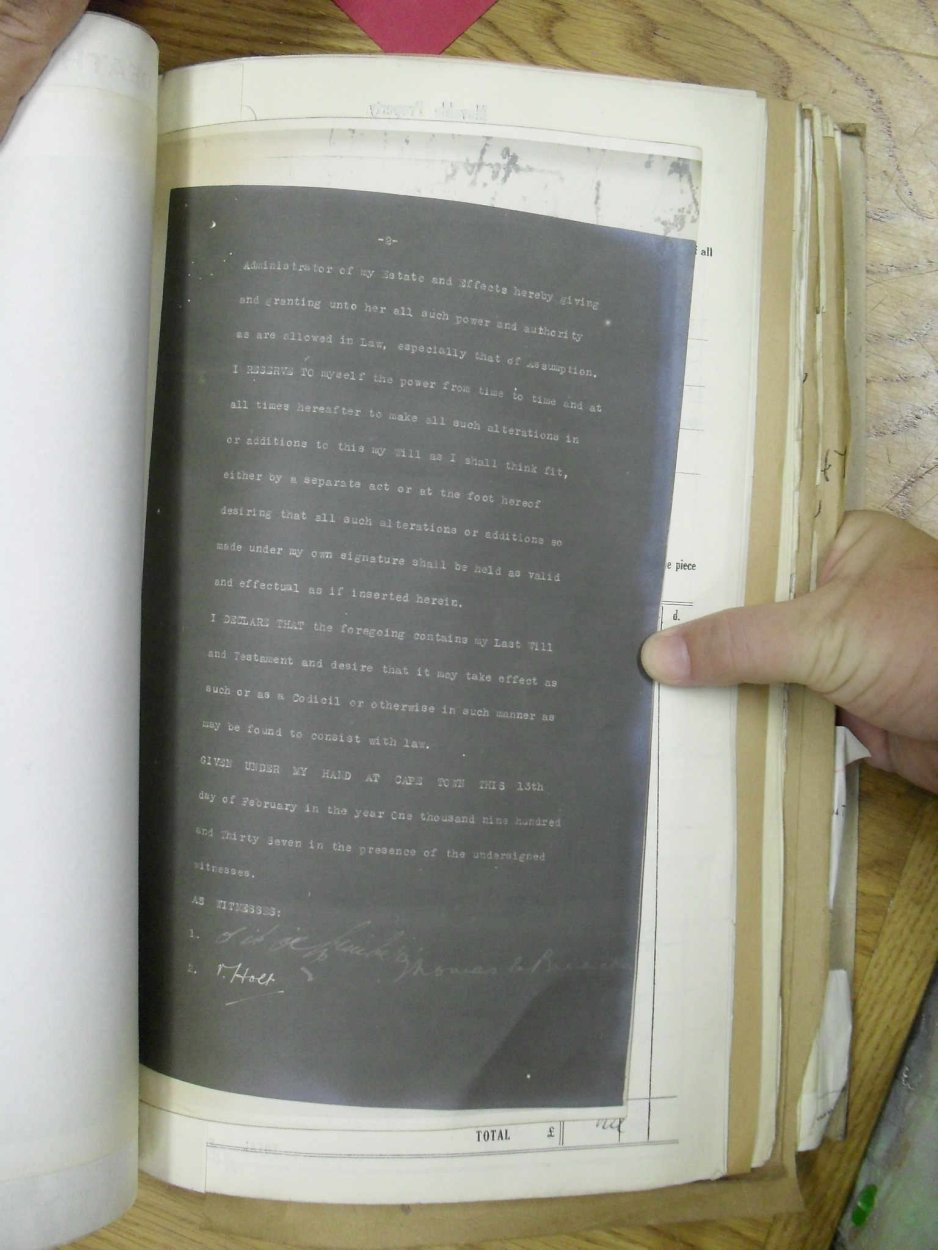 -2-
Administrator of my Estate and Effects hereby giving
and granting unto her all such power and authority
as are allowed in Law, especially that of Assumption.
I RESERVE TO myself the power from time to time and at
all times hereafter to make all such alterations in
or additions to this my Will as I shall think fit,
either by a separate act or at the foot hereof
desiring that all such alterations or additions so
made under my own signature shall be held as valid
and effectual as if inserted herein.
I DECLARE THAT the foregoing contains my Last Will
and Testament and desire that it may take effect as
such or as a Codicil or otherwise in such manner as
may be found to consist with law.
GIVEN UNDER MY HAND AT CAPE TOWN THIS 13th
day of February in the year One thousand nine hundred
and Thirty Seven in the presence of the undersigned
witnesses.
AS WITNESSES:
1.
Thomas
2. V. Holt
all
e piece
d.
TOTAL £ nil